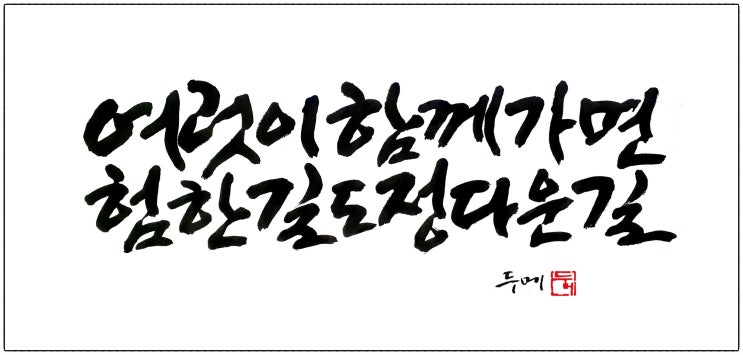 여럿이함께가면
험한길도정다운길
두메
두메